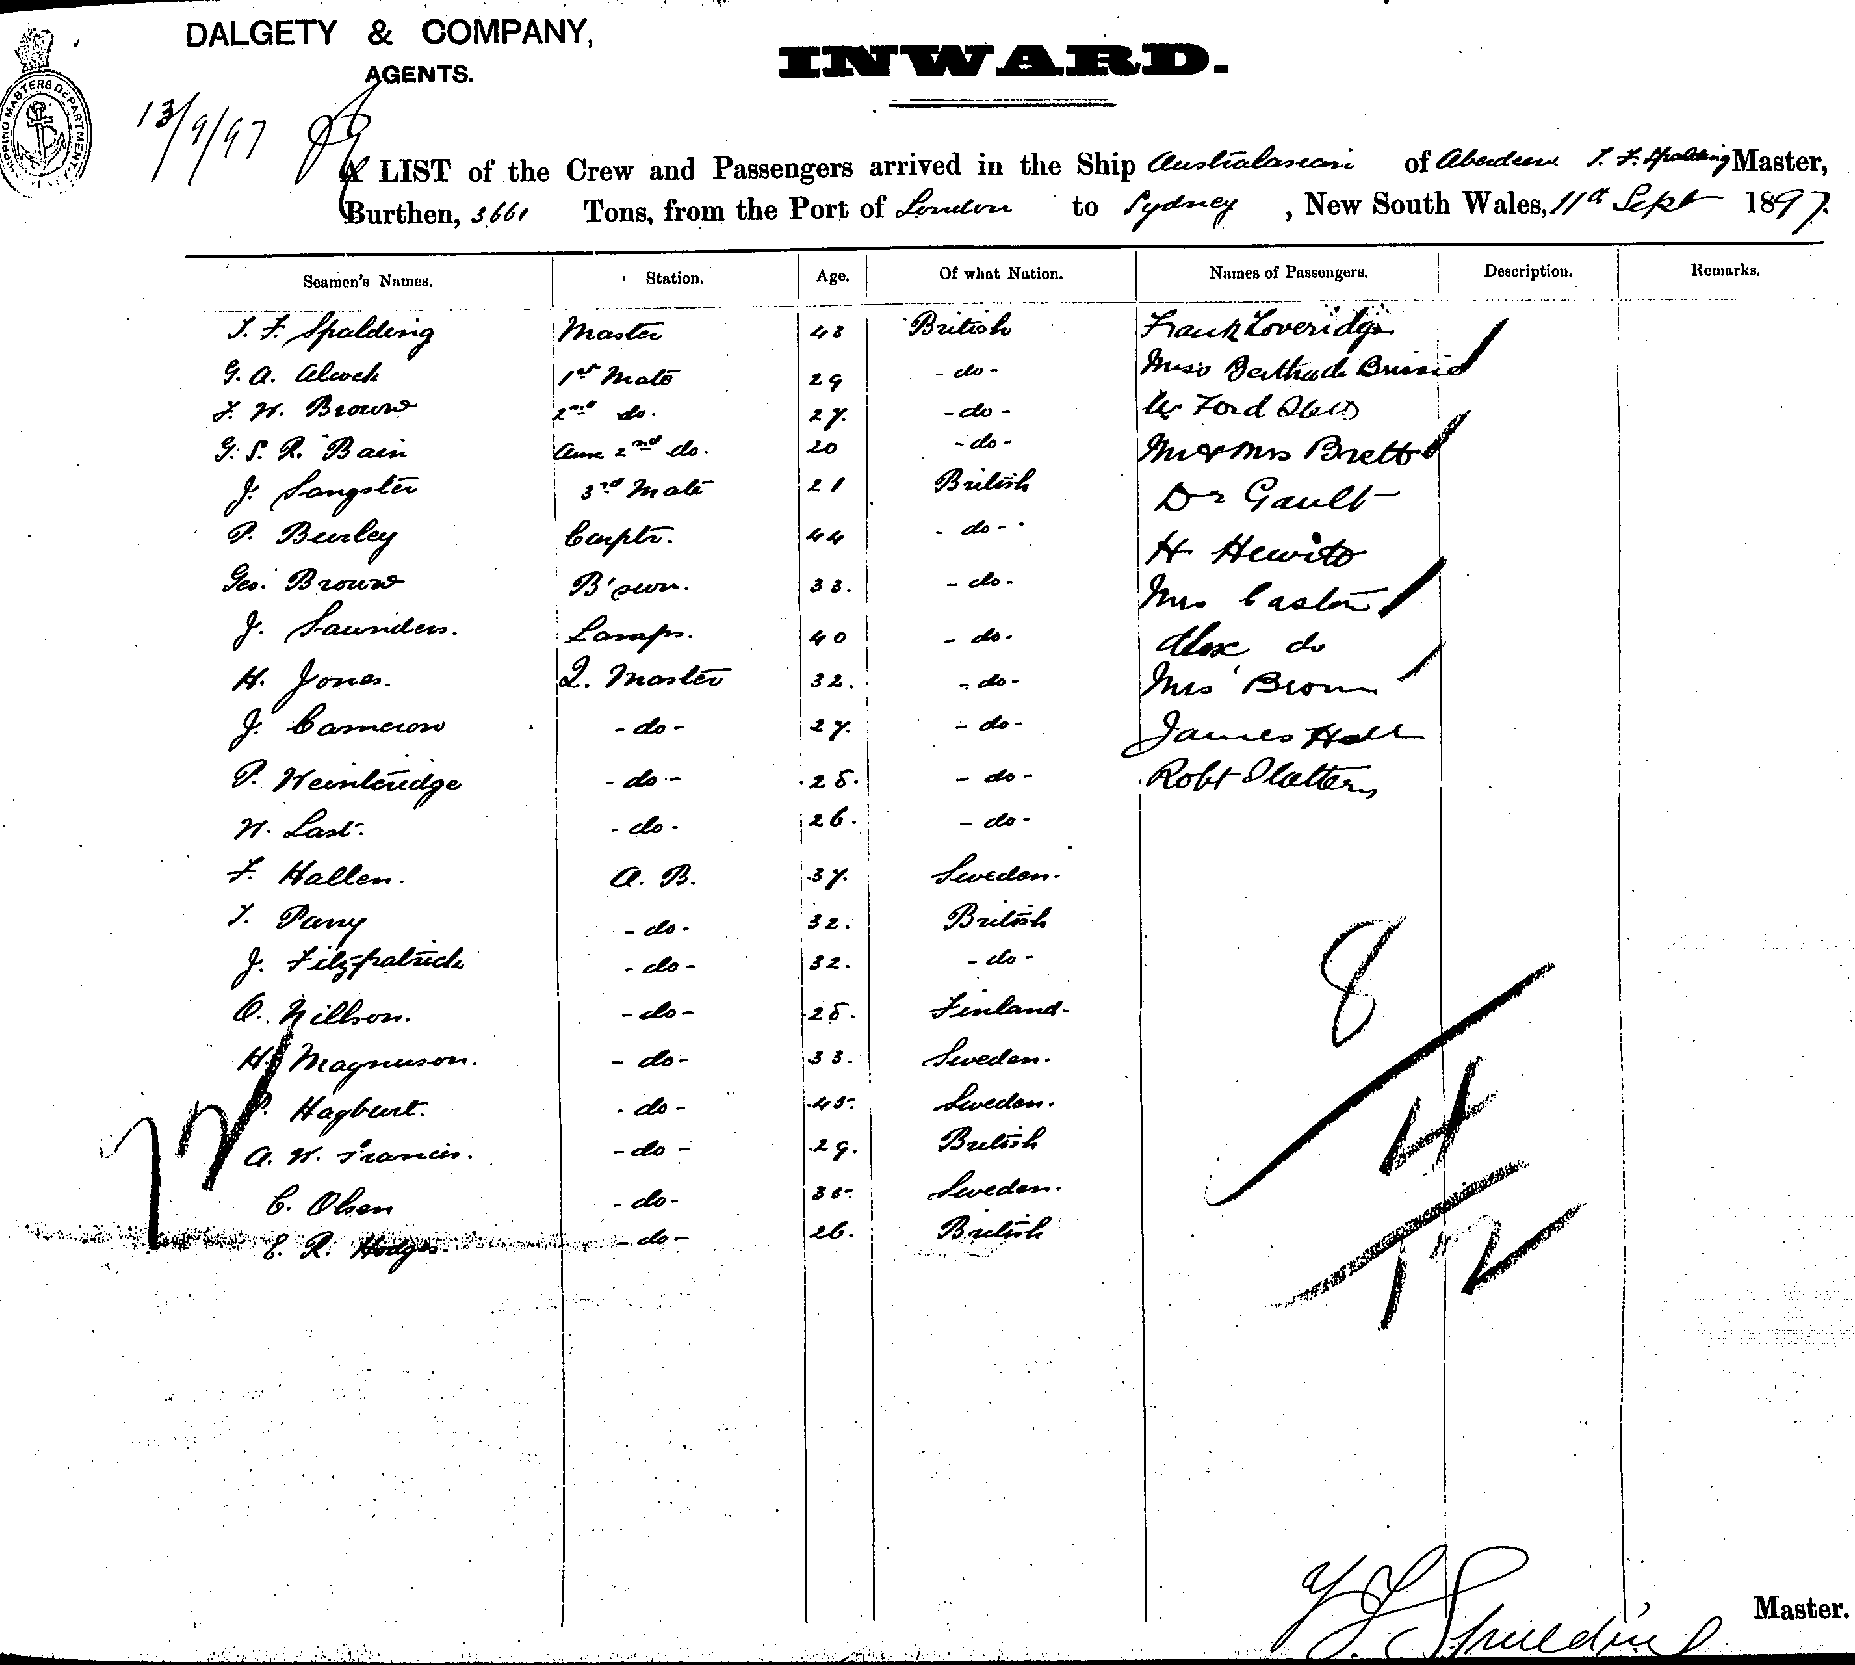 DALGETY & COMPANY,
AGENTS.
INWARD.
13/9/97
A LIST of the Crew and Passengers arrived in the Ship Australasian of Aberdeen T. F. Spalding Master,
Burthen, 3661 Tons, from the Port of London to Sydney, New South Wales, 11th Sept 1897.
Seamen's Names. Station. Age. Of what Nation. Names of Passengers. Description. Remarks.
T. F. Spalding Master 48 British Frank Loveridge
G. A. Alcock 1st Mate 29 -do- Miss Gertrude
F. W. Brown 2nd do. 27. -do- Ford
G. S. R. Bain 2nd do. 20 -do- Mr & Mrs Brett
J. Sangster 3rd Mate 21 British Dr Gault
P. Burley Carptr. 44 -do- H Hewitt
Geo. Brown B'swn. 33. -do- Mrs Caston
J. Saunders. Lamps. 40 -do- Alex do
H. Jones. Q. Master 32. -do- Mrs Brown
J. Cameron -do- 27. -do- James Hall
P. -do- 25. -do- Robt Slattery
W. Last. -do- 26. -do-
F. Hallen. A. B. 37. Sweden.
T. Parry -do- 32. British
J. Fitzpatrick -do- 32. -do-
O. Nillson. -do- 25. Finland.
H. Magnuson. -do- 33. Sweden.
P. Hagburt. -do- 45. Sweden.
A. W. Francis. -do- 29. British
C. Olsen -do- 35. Sweden.
E. R. Hodges. -do- 26. British
8
4
12
T. F. Spalding
Master.